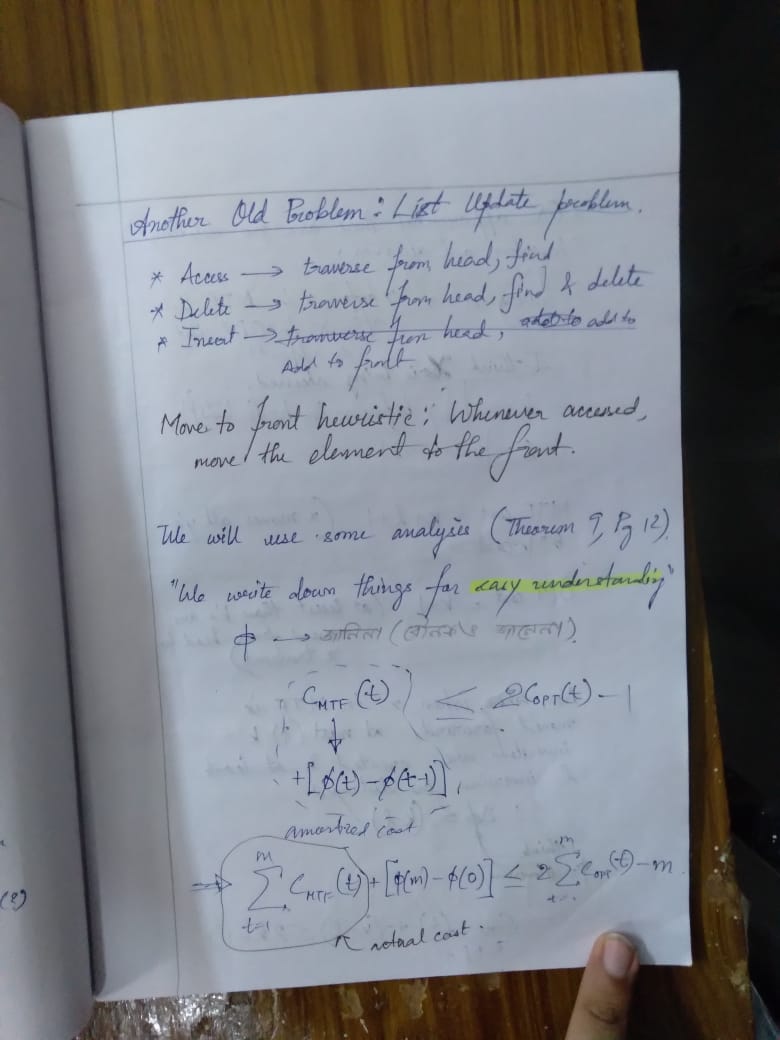 Another Old Problem: List Update problem.
* Access → traverse from head, find
* Delete → traverse from head, find & delete
* Insert → tranverse from head, add to add to
Add to front
Move to front heuristic: Whenever accessed,
move the element to the front.
We will use some analysis (Theorem 9, Pg 12).
"We write down things for easy understanding"
ϕ → জানিনা (
C_MTF(t) ≤ 2C_OPT(t) - 1
↓
+[ϕ(t) - ϕ(t-1)]
amortized cost
⇒ m∑t=1 C_MTF(t) + [ϕ(m) - ϕ(0)] ≤ 2 m∑ C_OPT(t) - m
actual cost.
(2)